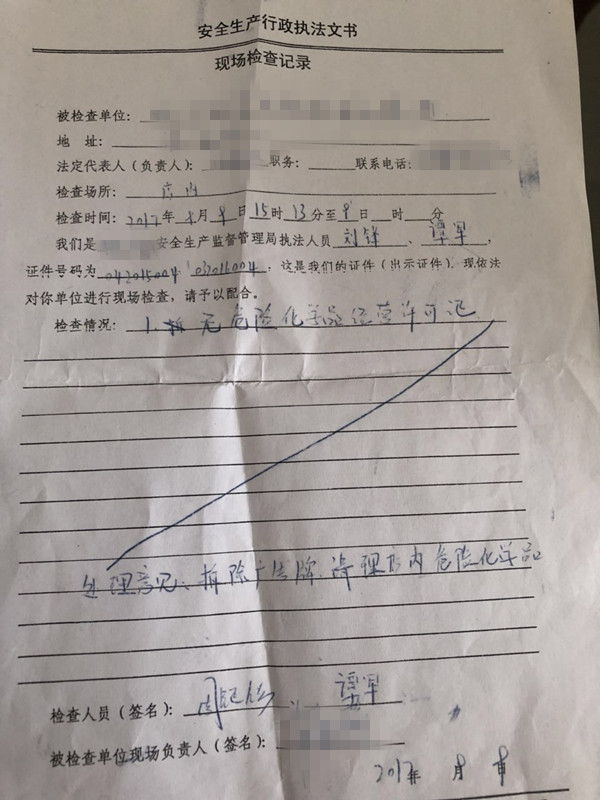 安全生产行政执法文书
现场检查记录
被检查单位:
地 址:
法定代表人(负责人): 职务: 联系电话:
检查场所: 店内
检查时间: 2017年 月 日 15时13分至 日 时 分
我们是 安全生产监督管理局执法人员 刘锋 、 谭军 ,
证件号码为 042015004 03016004 ,这是我们的证件(出示证件)。现依法
对你单位进行现场检查,请予以配合。
检查情况: 1. 无危险化学品经营许可证
处理意见: 拆除广告牌、清理店内危险化学品
检查人员(签名): 谭军
被检查单位现场负责人(签名):
2017年 月